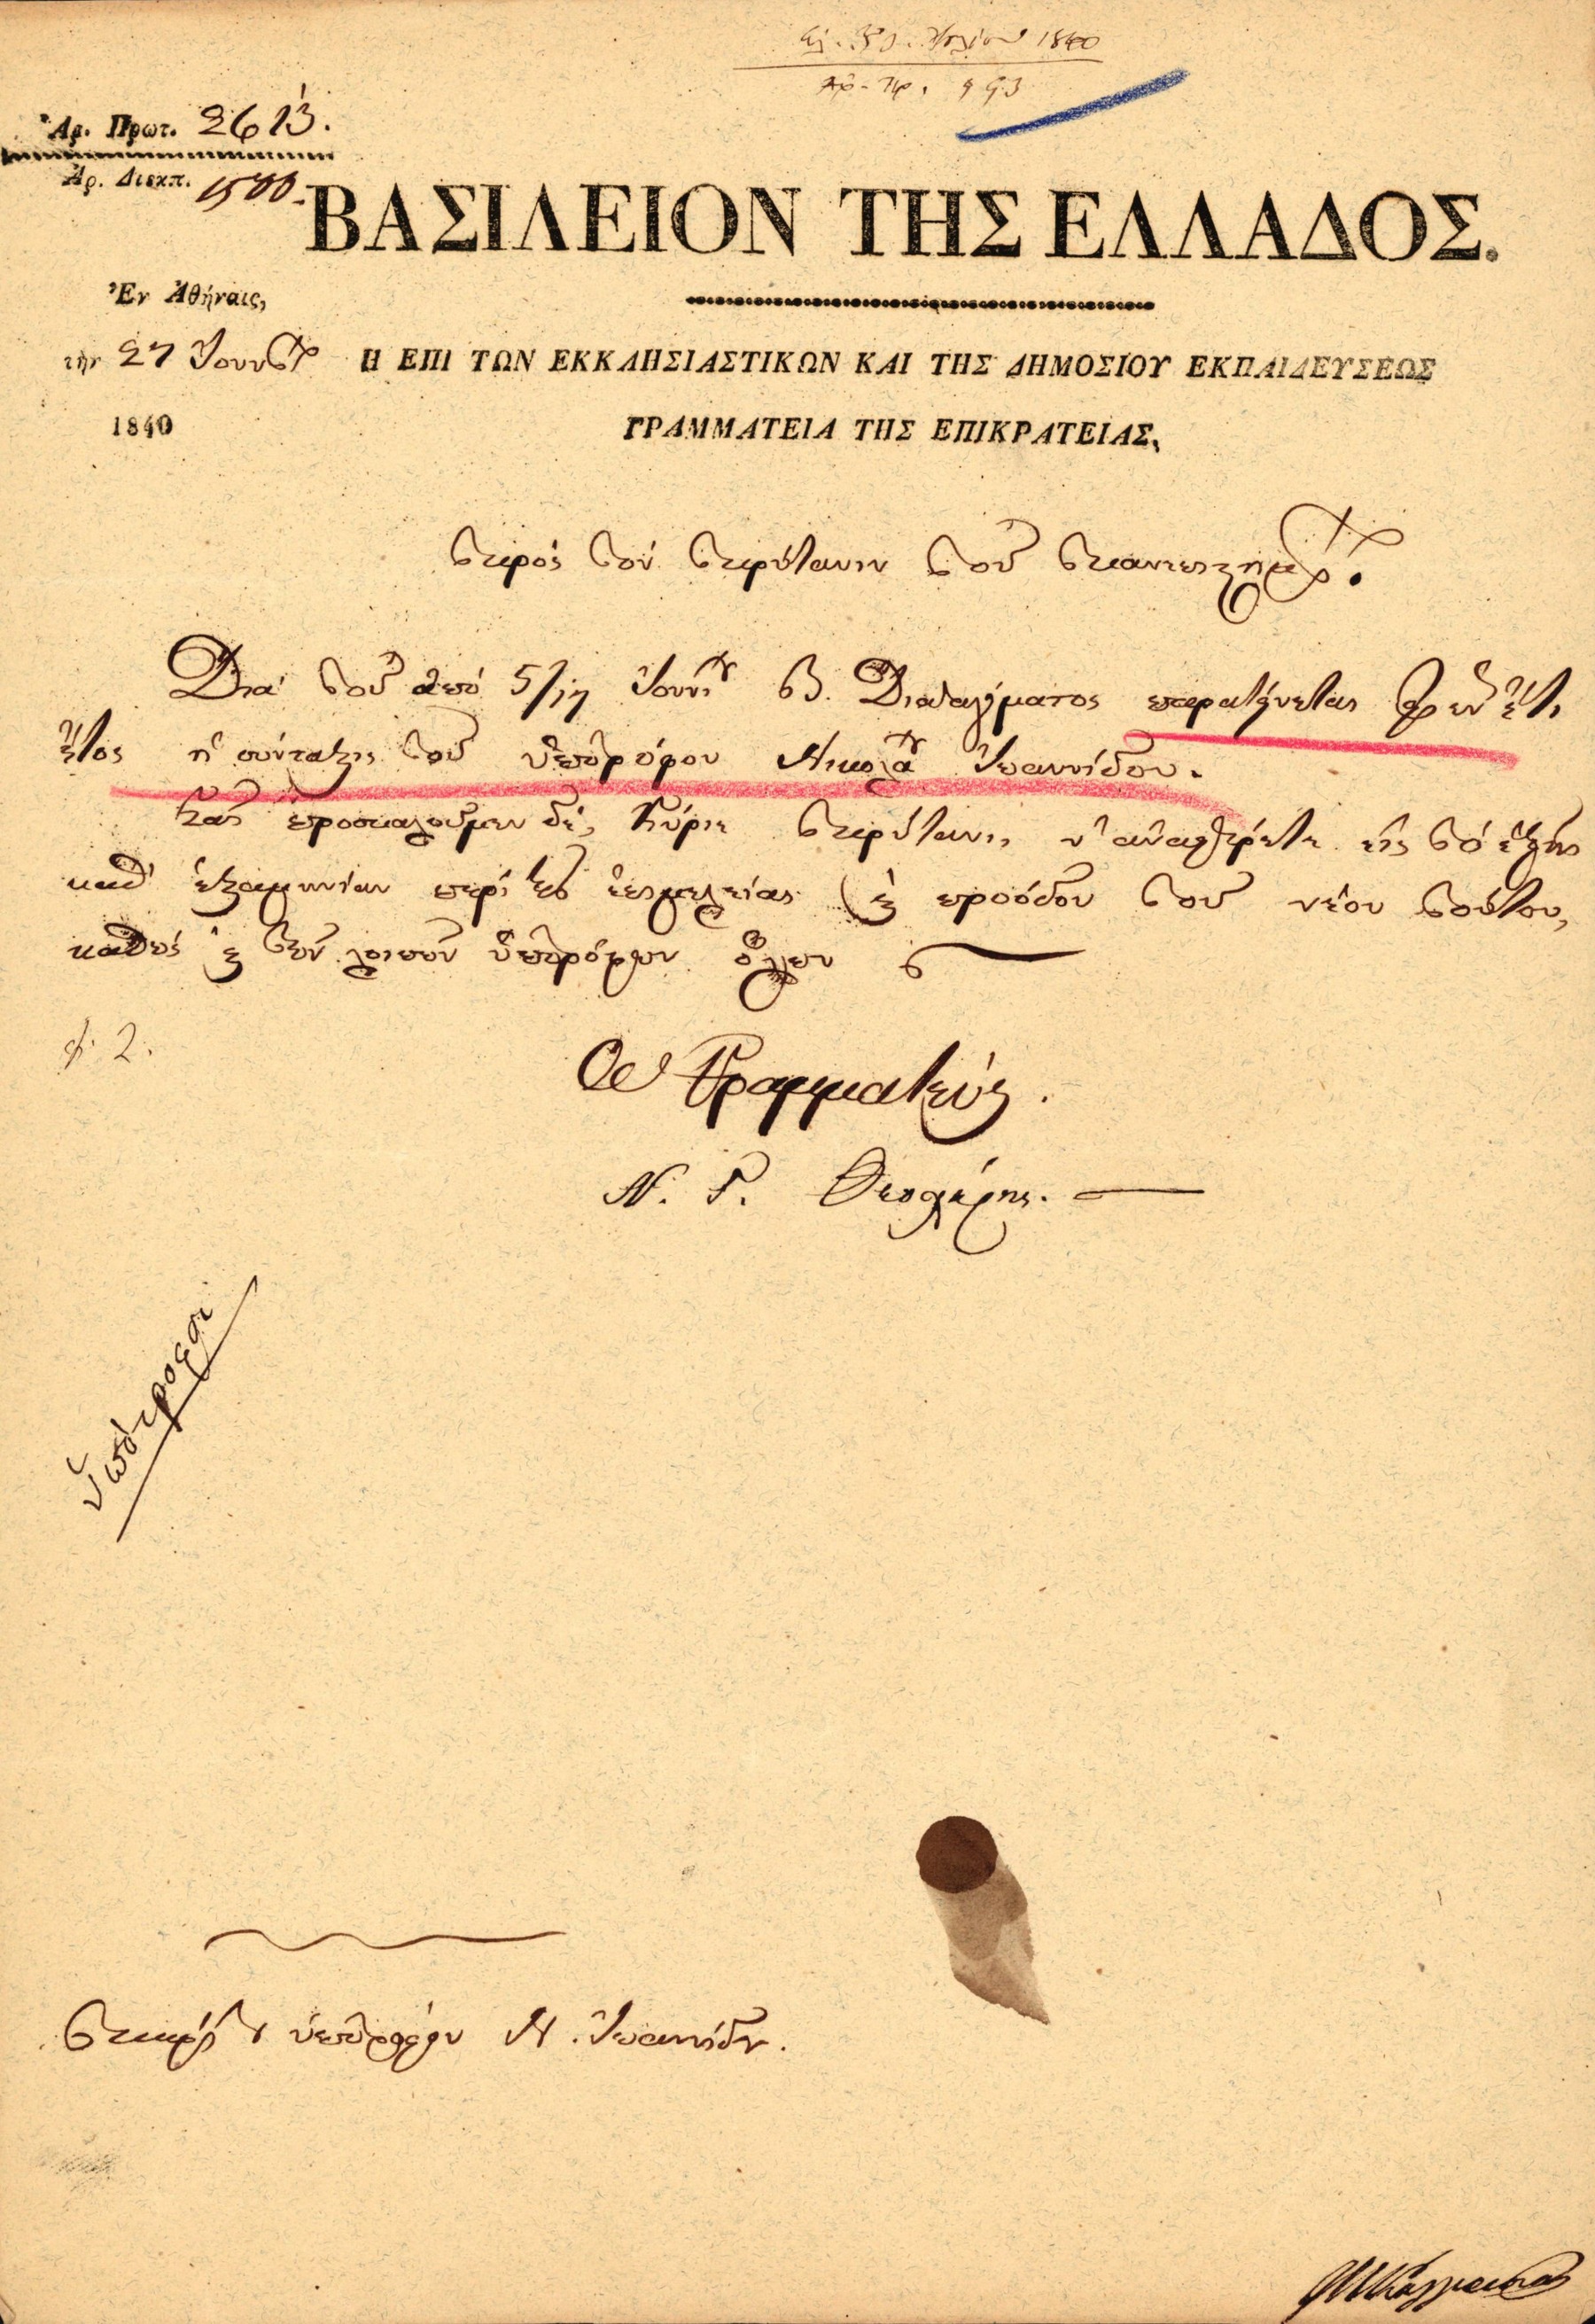 Εἰ. 30. Ἰουλίου 1840
Ἀρ. Πρ. 993
Ἀρ. Πρωτ. 2613.
Ἀρ. Διεκπ. 1500.
ΒΑΣΙΛΕΙΟΝ ΤΗΣ ΕΛΛΑΔΟΣ.
Ἐν Ἀθήναις,
τὴν 27 Ἰουνίου
Η ΕΠΙ ΤΩΝ ΕΚΚΛΗΣΙΑΣΤΙΚΩΝ ΚΑΙ ΤΗΣ ΔΗΜΟΣΙΟΥ ΕΚΠΑΙΔΕΥΣΕΩΣ
1840
ΓΡΑΜΜΑΤΕΙΑ ΤΗΣ ΕΠΙΚΡΑΤΕΙΑΣ,
Πρὸς τὸν Πρύτανιν τοῦ Πανεπιστημίου.
Διὰ τοῦ ἀπὸ 5/17 Ἰουνίου Β. Διατάγματος παρατείνεται ἓν ἔτι
ἔτος ἡ σύνταξις τοῦ ὑποτρόφου Νικολάου Ἰωαννίδου.
Σᾶς προσκαλοῦμεν δέ, Κύριε Πρύτανι, ν' ἀναφέρετε εἰς τὸ ἑξῆς
καθ' ἑξαμηνίαν περὶ τῆς ἐπιμελείας καὶ προόδου τοῦ νέου τούτου,
καθὼς καὶ τῶν λοιπῶν ὑποτρόφων ὅλων
φ. 2.
Ὁ Γραμματεύς.
Ν. Γ. Θεοχάρης.
ὑπότροφοι
Περὶ τοῦ ὑποτρόφου Ν. Ἰωαννίδου.